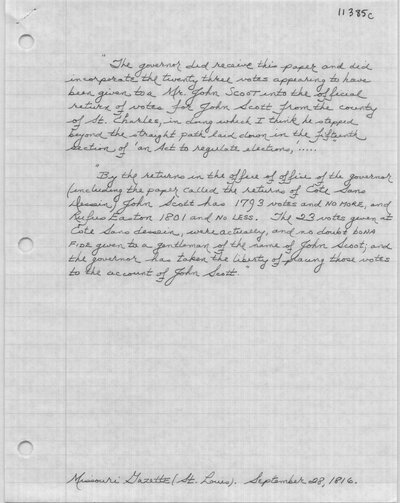 11385c
"The governor did receive this paper and did
incorporate the twenty three votes appearing to have
been given to a Mr. John SCOOT into the official
return of votes for John Scott from the county
of St. Charles, in doing which I think he stepped
beyond the straight path laid down in the fifteenth
section of 'an Act to regulate elections,'.....
"By the returns in the office of office of the governor
(including the paper called the returns of Cote Sans
Dessein) John Scott has 1793 votes and NO MORE, and
Rufus Easton 1801 and NO LESS. The 23 votes given at
Cote Sans dessein, were actually, and no doubt bONA
FIDE given to a gentleman of the name of John Scoot; and
the governor has taken the liberty of placing those votes
to the account of John Scott."
Missouri Gazette (St. Louis). September 28, 1816.